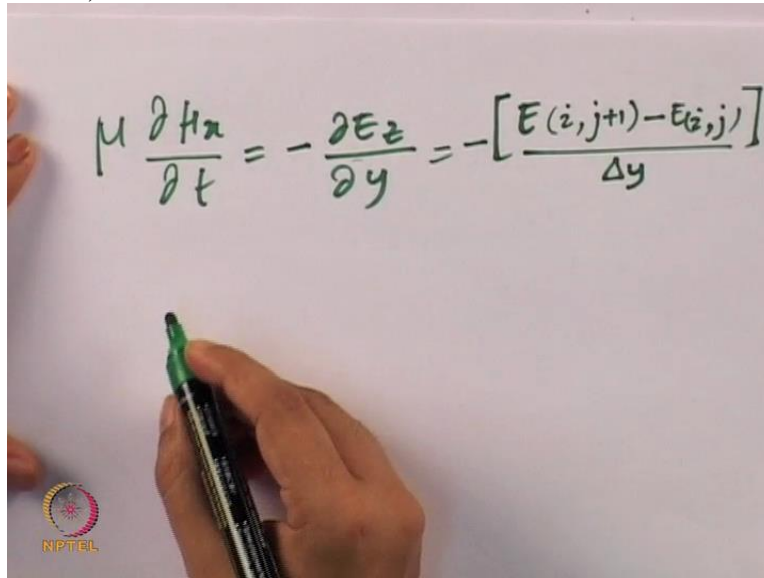 μ ∂Hx/∂t = - ∂Ez/∂y = -[E(i,j+1)-E(i,j)/Δy]
NPTEL